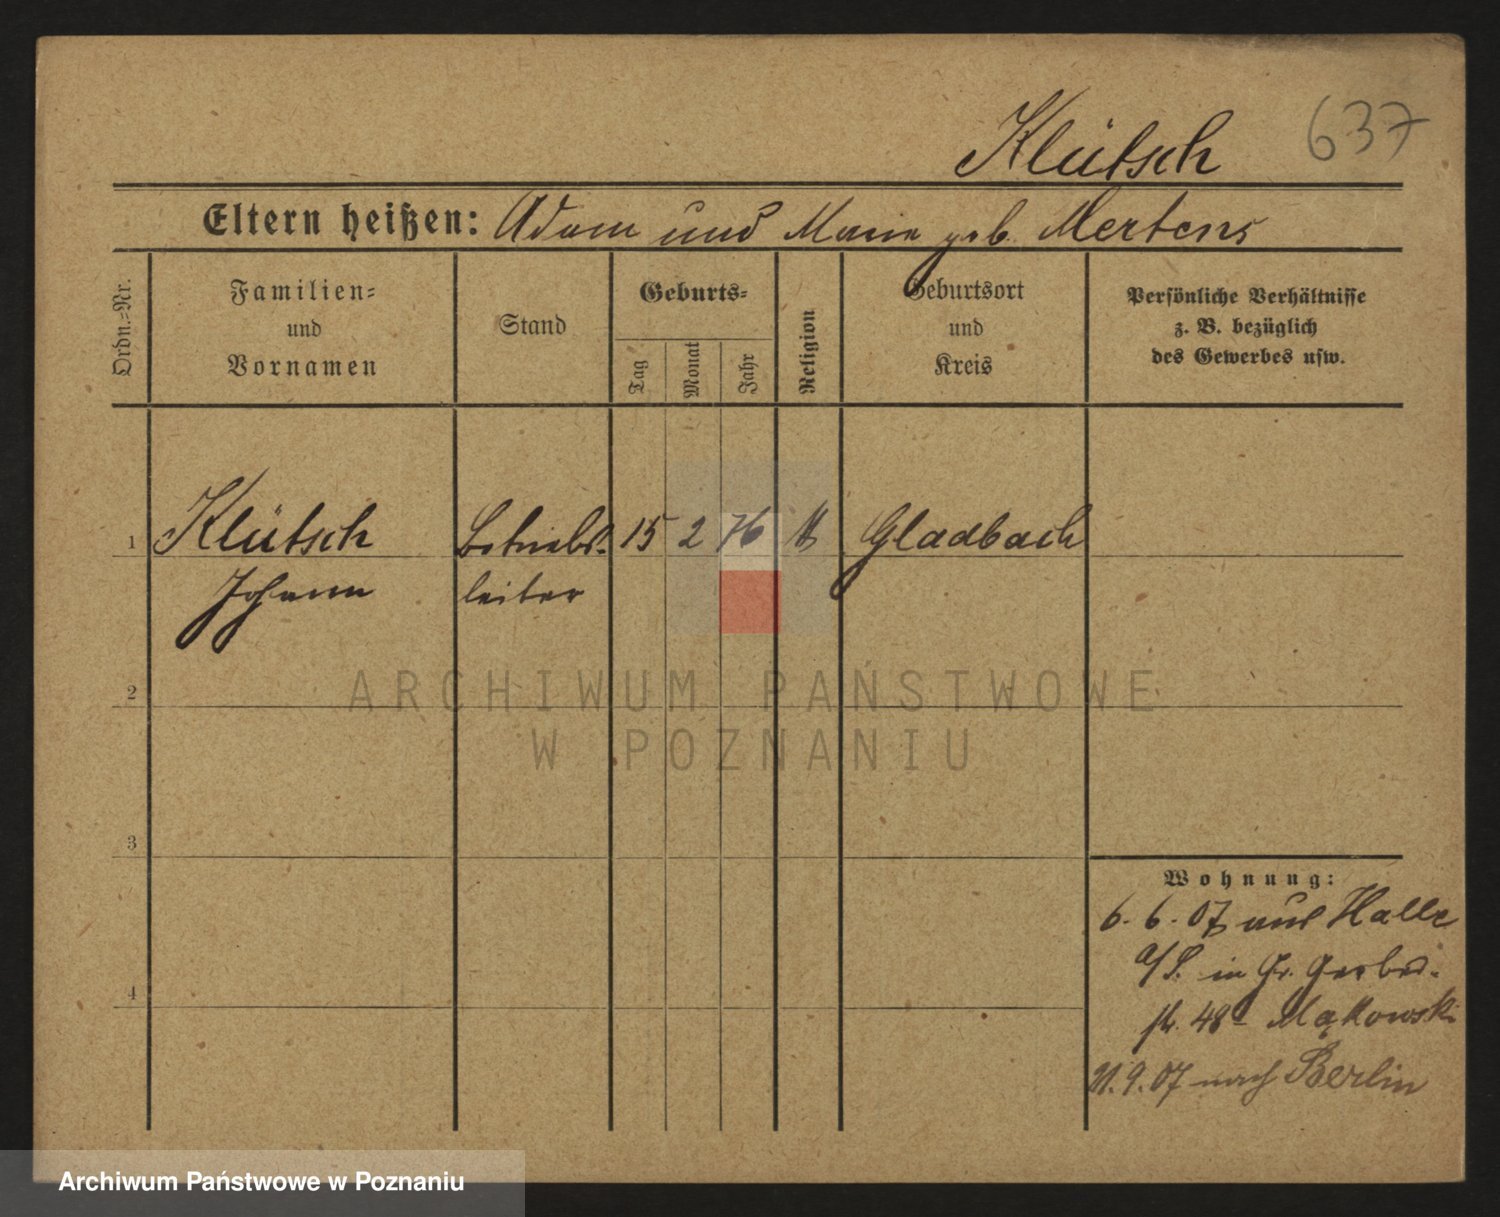 637
Klütsch
Eltern heißen: Adam und Marie geb. Mertens
Ordn.=Nr.
Familien=
und
Vornamen
Stand
Geburts=
Tag
Monat
Jahr
Religion
Geburtsort
und
Kreis
Persönliche Verhältnisse
z. B. bezüglich
des Gewerbes usw.
1 Klütsch Betriebs- 15 2 76 Gladbach
Johann leiter
2
3
4
Wohnung:
6.6.07 aus Halle
a/S. in Gr. Gerber-
str. 48 - Mąkowski
11.9.07 nach Berlin
ARCHIWUM PAŃSTWOWE
W POZNANIU
Archiwum Państwowe w Poznaniu